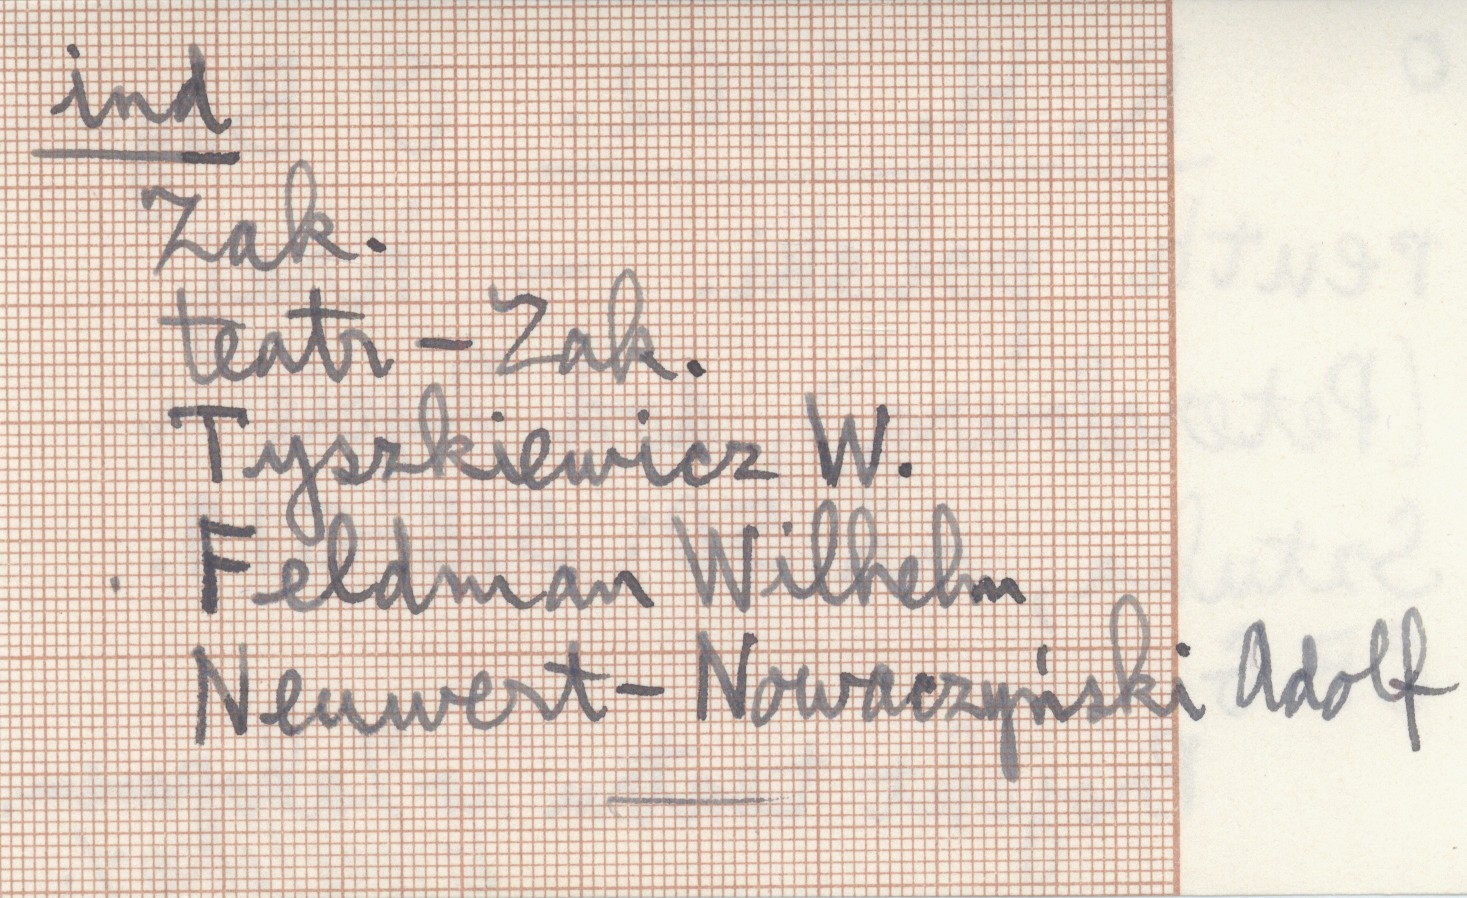 ind
Zak.
teatr - Zak.
Tyszkiewicz W.
Feldman Wilhelm
Neuwert - Nowaczyński Adolf